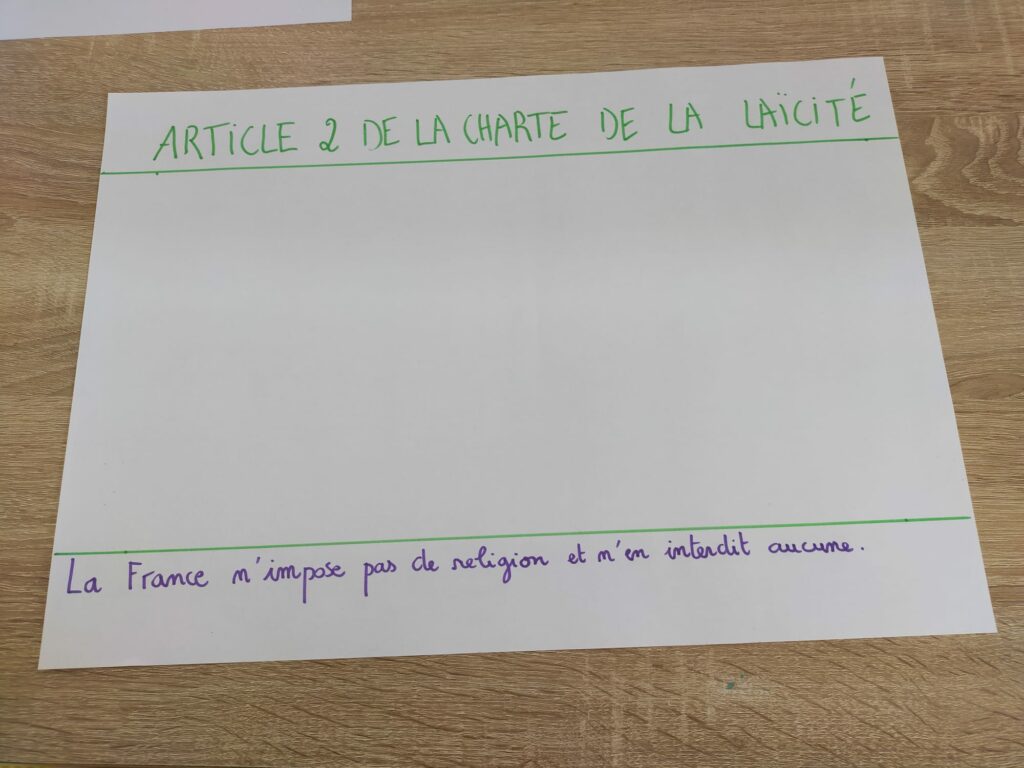 ARTiCLE 2 DE LA CHARTE DE LA LAÏCiTÉ
La France n'impose pas de religion et n'en interdit aucune.